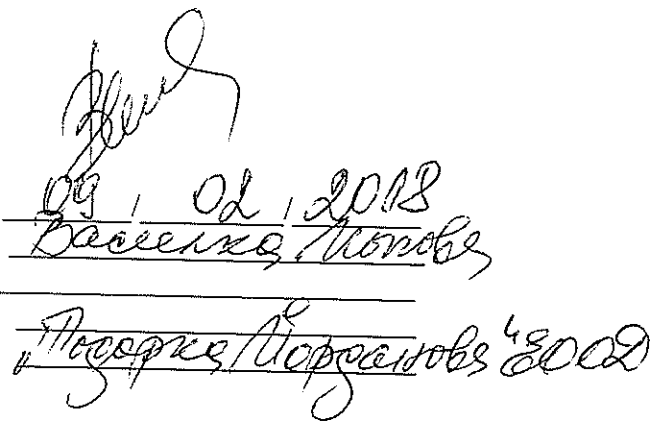 09 / 02 / 2018
Василка Йонова
"Тодорка Йорданова" ЕООД